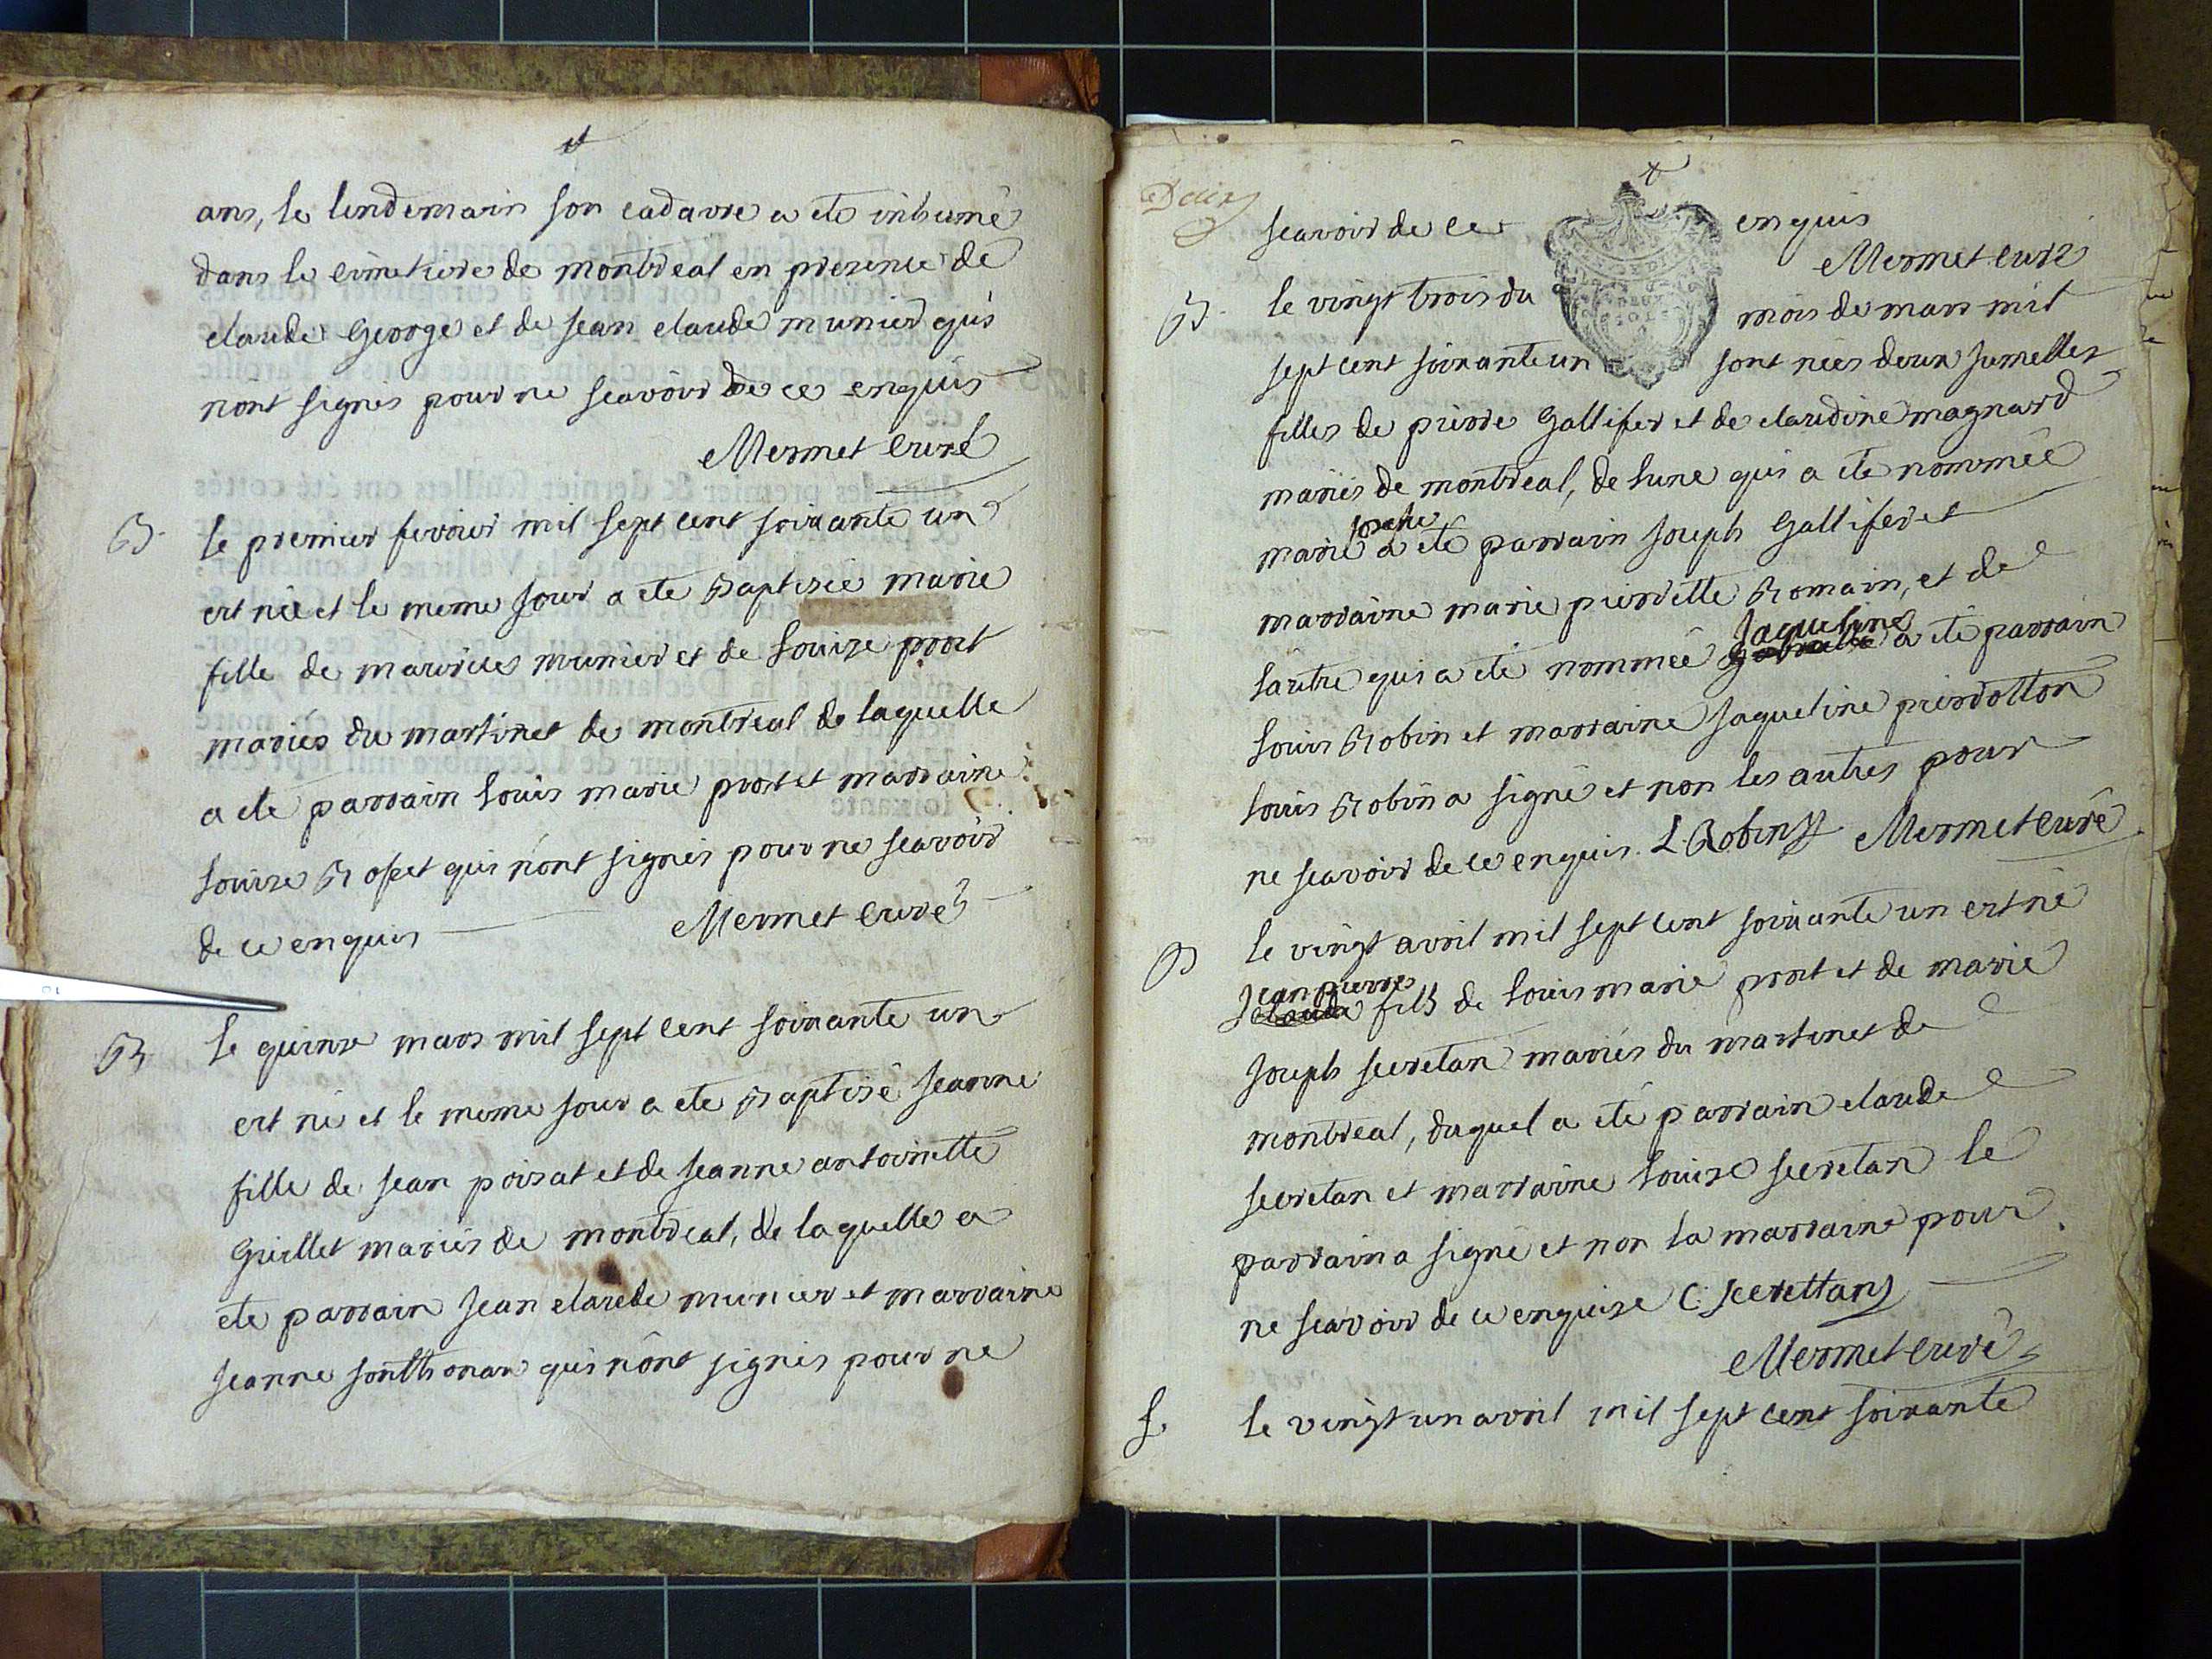 ans, le lendemain son cadavre a ete inhumé
dans le cimetiere de montreal en presence de
claude George et de jean claude munier qui
n'ont signés pour ne scavoir de ce enquis
Mermet curé
B. le premier fevrier mil sept cent soixante un
est née et le meme jour a ete Baptisée marie
fille de maurice munier et de Louise prost
mariés du martinet de montreal de laquelle
a ete parrain Louis marie prost et marraine
Louise Roset qui n'ont signés pour ne scavoir
de ce enquis Mermet curé
B. le quinze mars mil sept cent soixante un
est né et le meme jour a ete Baptisé jeanne
fille de jean poisat et de jeanne antoinette
Guillet mariés de montreal, de laquelle a
ete parrain Jean claude munier et marraine
jeanne sonthonax qui n'ont signés pour ne
scavoir de ce enquis
Mermet curé
B. le vingt trois du mois de mars mil
sept cent soixante un sont nées deux jumelles
filles de pierre Gallifet et de claudine magnard
mariés de montreal, de l'une qui a ete nommée
josephe
marie a ete parrain joseph Gallifet et
marraine marie pierrette Romain, et de
Jaqueline
l'autre qui a ete nommée a ete parrain
Louis Robin et marraine jaqueline pierrotton
Louis Robin a signé et non les autres pour
ne scavoir de ce enquis. L Robin Mermet curé
B le vingt avril mil sept cent soixante un est né
Jean pierre
claude fils de Louis marie prost et de marie
joseph secretan mariés du martinet de
montreal, duquel a ete parrain claude
secretan et marraine Louise secretan le
parrain a signé et non la marraine pour
ne scavoir de ce enquise C: Secrettan
Mermet curé
S. le vingt un avril mil sept cent soixante